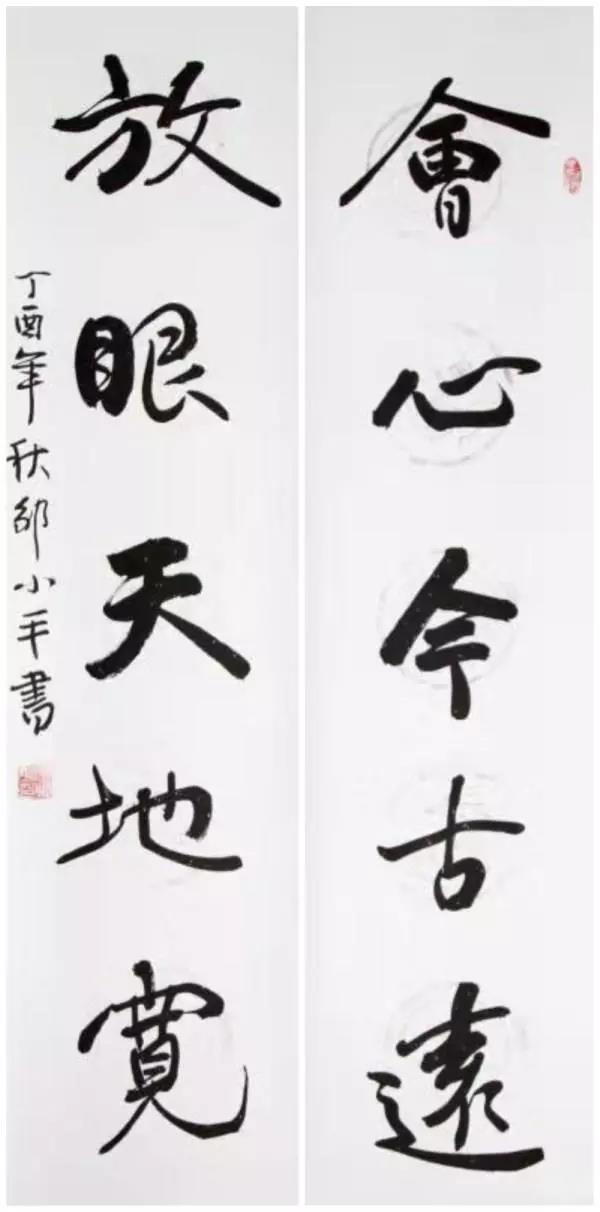 會心今古遠
放眼天地寬
丁酉年秋邵小平書